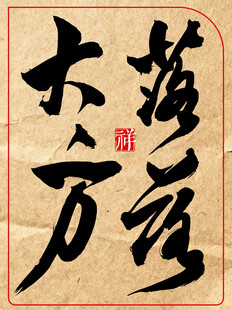 落落
大方
祥